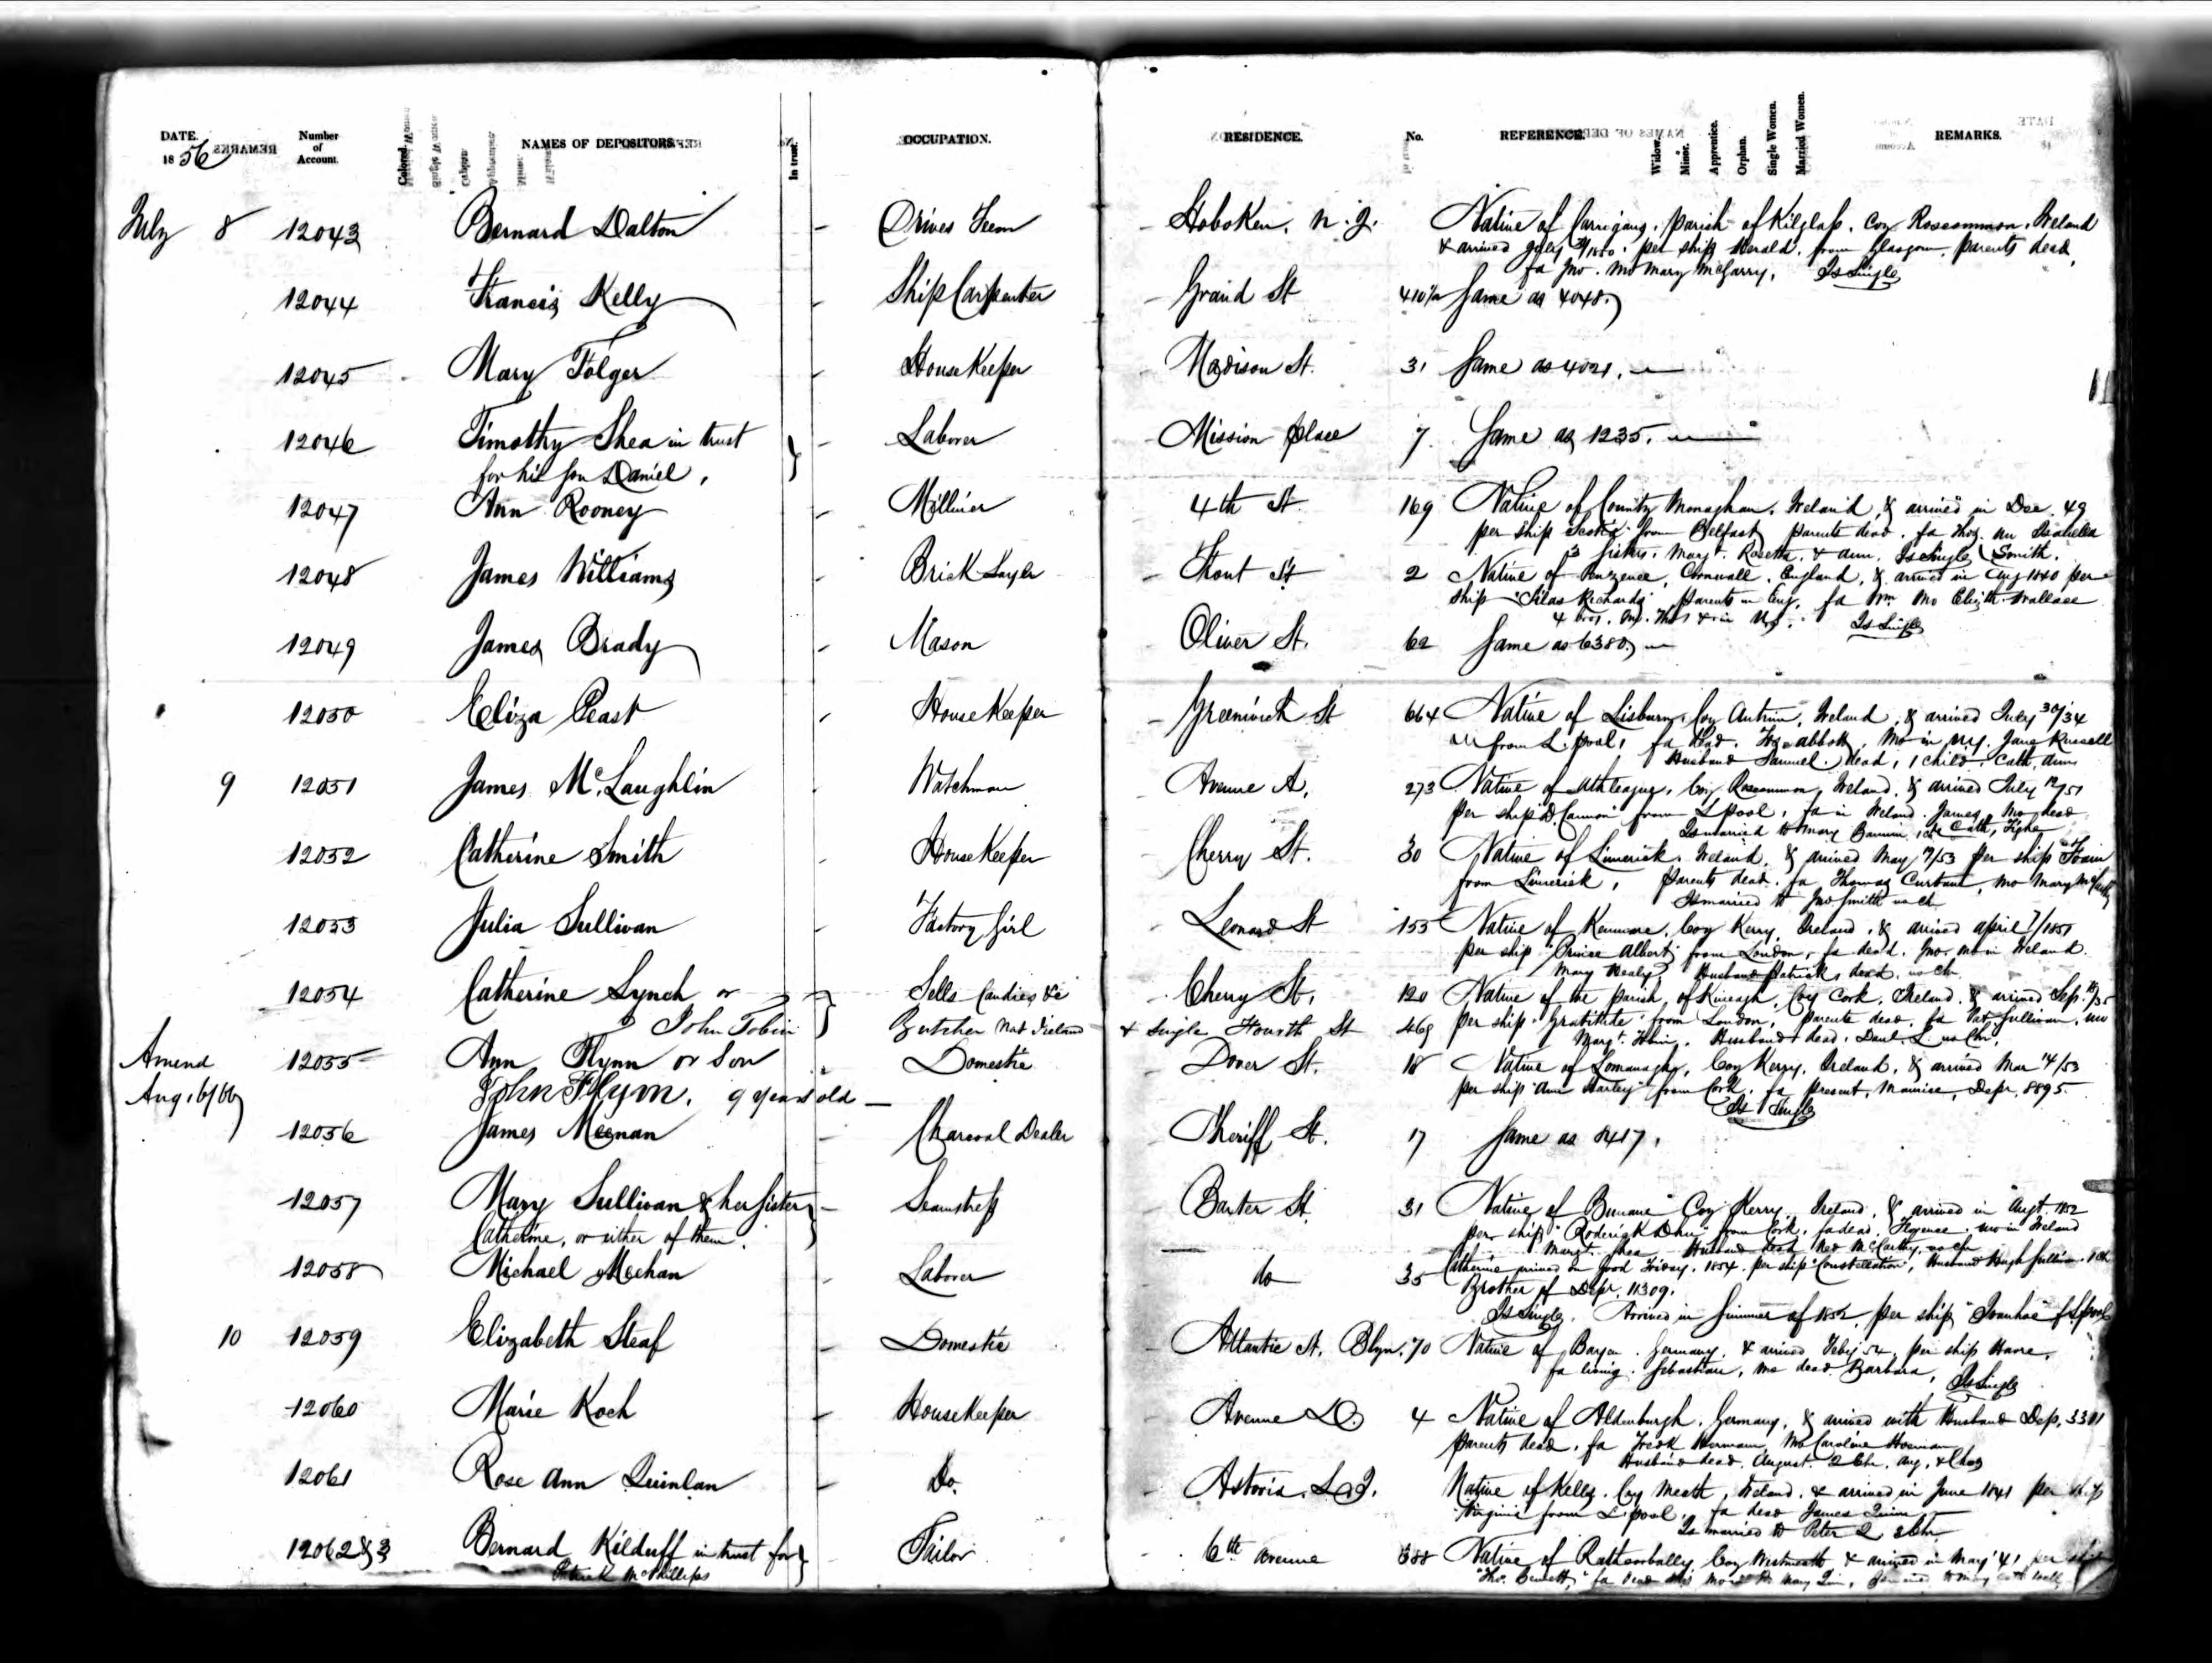 DATE. 1856 Number of Account. Colored. NAMES OF DEPOSITORS. In trust. OCCUPATION. RESIDENCE. No. REFERENCE. Widow. Minor. Apprentice. Orphan. Single Women. Married Women. REMARKS.
July 8 12043 Bernard Dalton Drives Teem Hoboken, N. J. Native of parish of Kilglass, Coy Roscommon, Ireland
& arrived July per ship Herald from Glasgow, parents dead,
fa Jno. Mo Mary McGarry, Is Single
12044 Francis Kelly Ship Carpenter Grand St 410½ Same as 4048.
12045 Mary Folger HouseKeeper Madison St. 31 Same as 4021.
12046 Timothy Shea in trust Laborer Mission place 7. Same as 1235.
for his son Daniel,
12047 Ann Rooney Milliner 4th St 169 Native of County Monaghan, Ireland, & arrived in Dec. 49
per ship Scotia from Belfast, parents dead, fa Thos. mo Isabella
3 sisters, Margt. Rosetta, & Ann. Is Single Smith.
12048 James Williams Brick Layer 2 Native of Penzence, Cornwall, England, & arrived in Aug 1840 per
ship "Silas Richards" parents in Eng, fa Wm Mo Elizth Wallace
4 bros. Is Single
12049 James Brady Mason Oliver St. 62 Same as 6380.
12050 Eliza Peast HouseKeeper Greenwich St 664 Native of Lisburn, Coy Antrim, Ireland, & arrived July 30/34
from L.pool, fa dead. Abbott, Mo in N.Y. Jane Russell
Husband Samuel dead, 1 child Cath. Ann
9 12051 James McLaughlin Watchman Avenue A. 273 Native of Athleague, Coy Roscommon, Ireland, & arrived July 12/51
per ship D. Cannon from L pool, fa in Ireland James, Mo dead
Is married to Mary Cath, Tighe
12052 Catherine Smith HouseKeeper Cherry St. 30 Native of Limerick, Ireland, & arrived May 19/53 per ship
from Limerick, parents dead. fa Thomas Mo Mary McCarthy
Is married to Jno Smith no ch
12053 Julia Sullivan Factory Girl Leonard St 153 Native of Kenmare, Coy Kerry, Ireland, & arrived April 7/1851
per ship "Prince Albert" from London, fa dead. Jno, mo in Ireland
Mary Healy, Husband Patrick, dead, no ch
12054 Catherine Lynch or Sells Candies &c Cherry St. 120 Native of the parish of Coy Cork, Ireland, & arrived Sep.
John Tobin Butcher Nat Ireland & Single Fourth St 469 per ship "Gratitude" from London, parents dead, fa Pat Sullivan, mo
Margt. Husband dead, Danl L. no Chn,
Amend 12055 Ann Flynn or Son Domestic Dover St. 18 Native of Coy Kerry, Ireland, & arrived Mar 14/53
Aug. 16/66 John Flynn. 9 years old per ship "Ann Harley" from Cork, fa present, Maurice, Depr. 8895.
Is Single
12056 James Meenan Charcoal Dealer Sheriff St. 17 Same as 8417,
12057 Mary Sullivan & her sister Seamstress Baxter St. 31 Native of Bunane Coy Kerry Ireland, & arrived in Augt. 1852
Catherine, or either of them. per ship "Roderick Dhu" from Cork, fa dead, Florence, mo in Ireland
Margt. Shea Husband dead, McCarthy, no ch
Catherine arrived on Good Friday, 1854, per ship "Constellation", Husband Hugh Sullivan
12058 Michael Meehan Laborer do 35 Brother of Depr. 11309.
Is Single. Arrived in Summer of 1852, per ship "Ivanhoe" f Lpool
10 12059 Elizabeth Steaf Domestic Atlantic St. Blyn. 70 Native of Germany, & arrived Feby 54, per ship Havre,
fa living. Sebastian, mo dead. Barbara, Is Single
12060 Marie Koch HouseKeeper Avenue D. 4 Native of Oldenburgh, Germany, & arrived with Husband Dep. 3301
parents dead, fa Fredk Mo Caroline
Husband dead, August. 2 Chn. Aug. & Chas
12061 Rose Ann Quinlan Do. Astoria, L.I. Native of Kells, Coy Meath, Ireland, & arrived in June 1841 per ship
Virginia from L.pool, fa dead James Quinn
Is married to Peter Q 2 Chn
12062 & 3 Bernard Kilduff in trust for Tailor 6th Avenue 388 Native of Coy Westmeath & arrived in May '41 per ship
Patrick McPhillips "Thos. Bennett," fa dead